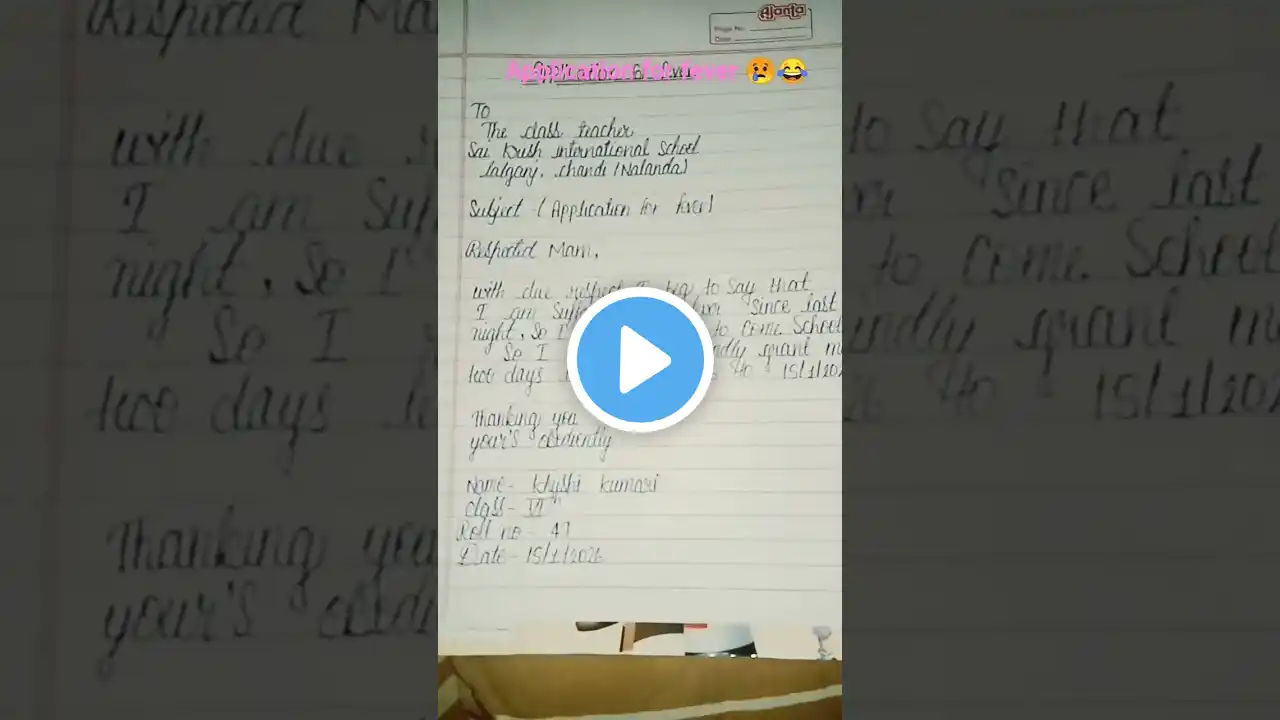 Ajanta
Page No.
Date
Application for fever 😢😂
Application for fever
To
The class teacher
Sai Krish international School
Lalganj, chandi (Nalanda)
Subject - ( Application for fever)
Respected Mam,
with due respect I beg to Say that
I am Suff fever Since last
night, So I' to come School
So I kindly grant m
two days to 15/1/202
Thanking you
your's obediently
Name - Khushi kumari
class - VIth
Roll no - 41
Date - 15/1/2026